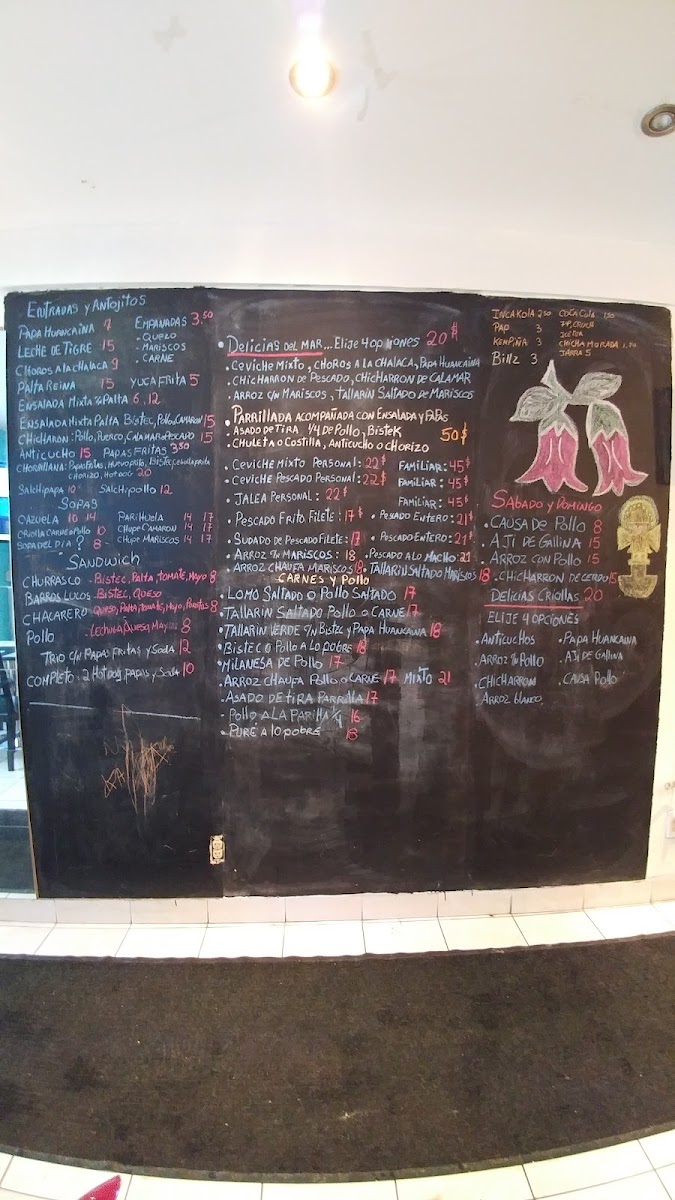 ENTRADAS y ANTOJITOS
PAPA HUANCAINA 7
LECHE DE TIGRE 15
CHOROS A LA CHALACA 9
PALTA REINA 15
EMPANADAS 3.50
. QUEZO
. MARISCOS
. CARNE
YUCA FRITA 5
ENSALADA MIXTA PALTA 6.12
ENSALADA MIXTA PALTA BISTEC, POLLO, CAMARON 15
CHICHARON: POLLO, PUERCO, CALAMAR O PESCADO 15
ANTICUCHO 15 PAPAS FRITAS 3.50
CHORRILLANA: PAPAS FRITAS, HUEVO FRITO, BISTEC, CEBOLLA FRITA
CHORIZO, HOT DOG 20
SALCHIPAPA 10 SALCHIPOLLO 12
SOPAS
CAZUELA 10 14
CRIOLLA CARNE O POLLO 10
SOPA DEL DIA ? 8
PARIHUELA 14 17
CHUPE CAMARON 14 17
CHUPE MARISCOS 14 17
SANDWICH
CHURRASCO - BISTEC, PALTA, TOMATE, MAYO 8
BARROS LUCOS - BISTEC, QUESO
CHACARERO QUESO, PALTA, TOMATE, MAYO, POROTOS 8
POLLO LECHUGA QUESO, MAYO 8
TRIO C/N PAPAS FRITAS y SODA 12
COMPLETO: 2 HOT DOG PAPAS, y SODA 10
. DELICIAS DEL MAR ... ELIJE 4 OPCIONES 20$
. CEVICHE MIXTO, CHOROS A LA CHALACA, PAPA HUANCAINA
. CHICHARRON DE PESCADO, CHICHARRON DE CALAMAR
. ARROZ C/N MARISCOS, TALLARIN SALTADO DE MARISCOS
. PARRILLADA ACOMPAÑADA CON ENSALADA y PAPAS
. ASADO DE TIRA 1/4 DE POLLO, BISTEK
. CHULETA O COSTILLA, ANTICUCHO O CHORIZO 50$
. CEVICHE MIXTO PERSONAL: 22$ FAMILIAR: 45$
. CEVICHE PESCADO PERSONAL: 22$ FAMILIAR: 45$
. JALEA PERSONAL: 22$ FAMILIAR: 45$
. PESCADO FRITO FILETE: 17$ . PESCADO ENTERO: 21$
. SUDADO DE PESCADO FILETE: 17 . PESCADO ENTERO: 21$
. ARROZ C/N MARISCOS: 18 . PESCADO A LO MACHO: 21
. ARROZ CHAUFA MARISCOS 18 . TALLARIN SALTADO MARISCOS 18
CARNES y POLLO
. LOMO SALTADO O POLLO SALTADO 17
. TALLARIN SALTADO POLLO O CARNE 17
. TALLARIN VERDE C/N BISTEC y PAPA HUANCAINA 18
. BISTEC O POLLO A LO POBRE 18
. MILANESA DE POLLO 17
. ARROZ CHAUFA POLLO O CARNE 17 MIXTO 21
. ASADO DE TIRA PARRILLA 17
- POLLO A LA PARILLA 1/4 16
. PURE A LO POBRE 18
INCA KOLA 2.50
PAP 3
KEM PIÑA 3
BILLZ 3
COCA COLA 1.50
7UP, CRUSH
ICETEA
CHICHA MORADA
JARRA 5
SABADO y DOMINGO
. CAUSA DE POLLO 8
. AJI DE GALLINA 15
. ARROZ CON POLLO 15
. CHICHARRON DE CERDO 15
DELICIAS CRIOLLAS 20
ELIJE 4 OPCIONES
ANTICUCHOS . PAPA HUANCAINA
. ARROZ C/N POLLO . AJI DE GALLINA
. CHICHARRON . CAUSA POLLO
ARROZ BLANCO